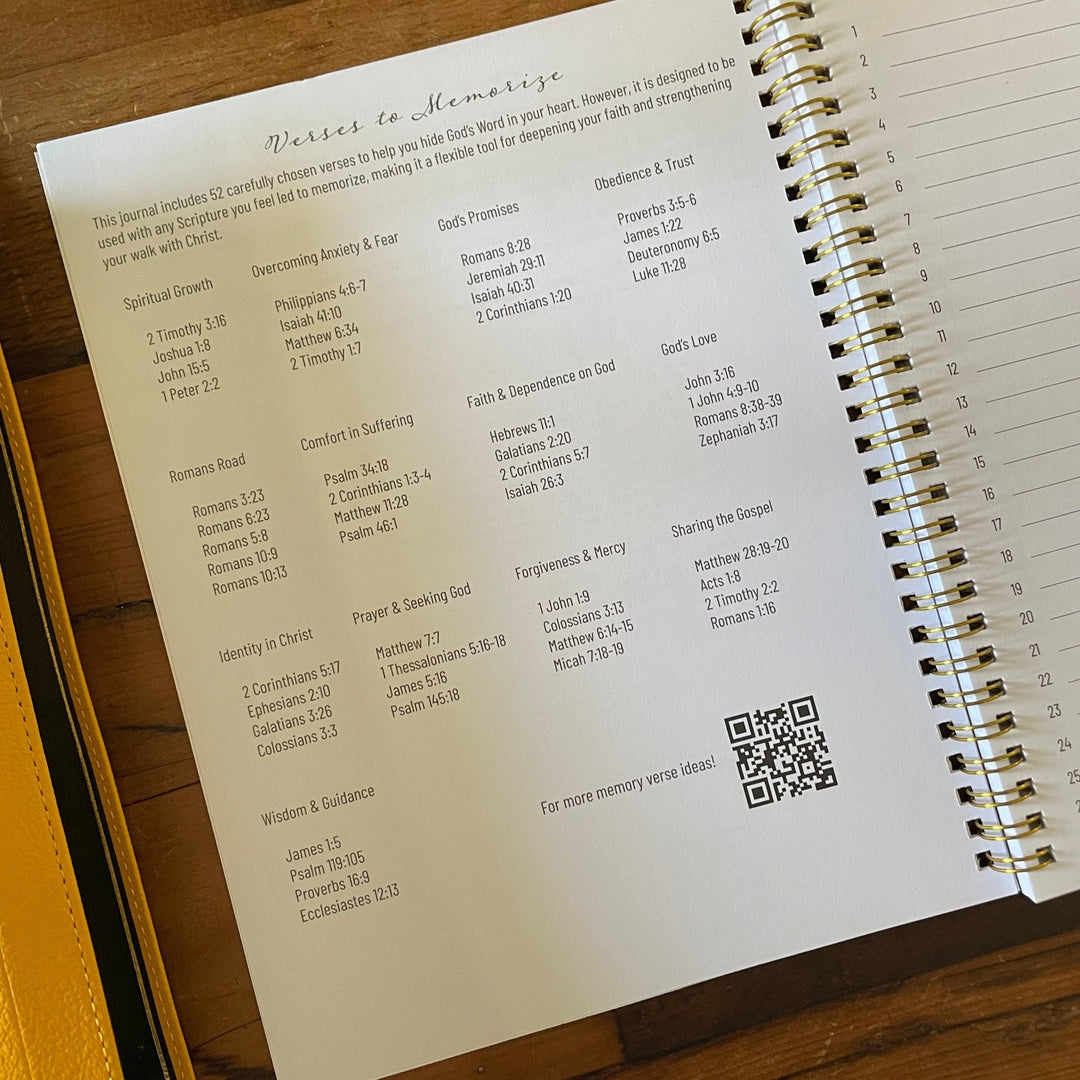 Verses to Memorize
This journal includes 52 carefully chosen verses to help you hide God's Word in your heart. However, it is designed to be
used with any Scripture you feel led to memorize, making it a flexible tool for deepening your faith and strengthening
your walk with Christ.
Spiritual Growth
2 Timothy 3:16
Joshua 1:8
John 15:5
1 Peter 2:2
Overcoming Anxiety & Fear
Philippians 4:6-7
Isaiah 41:10
Matthew 6:34
2 Timothy 1:7
God's Promises
Romans 8:28
Jeremiah 29:11
Isaiah 40:31
2 Corinthians 1:20
Obedience & Trust
Proverbs 3:5-6
James 1:22
Deuteronomy 6:5
Luke 11:28
Romans Road
Romans 3:23
Romans 6:23
Romans 5:8
Romans 10:9
Romans 10:13
Comfort in Suffering
Psalm 34:18
2 Corinthians 1:3-4
Matthew 11:28
Psalm 46:1
Faith & Dependence on God
Hebrews 11:1
Galatians 2:20
2 Corinthians 5:7
Isaiah 26:3
God's Love
John 3:16
1 John 4:9-10
Romans 8:38-39
Zephaniah 3:17
Identity in Christ
2 Corinthians 5:17
Ephesians 2:10
Galatians 3:26
Colossians 3:3
Prayer & Seeking God
Matthew 7:7
1 Thessalonians 5:16-18
James 5:16
Psalm 145:18
Forgiveness & Mercy
1 John 1:9
Colossians 3:13
Matthew 6:14-15
Micah 7:18-19
Sharing the Gospel
Matthew 28:19-20
Acts 1:8
2 Timothy 2:2
Romans 1:16
Wisdom & Guidance
James 1:5
Psalm 119:105
Proverbs 16:9
Ecclesiastes 12:13
For more memory verse ideas!
1
2
3
4
5
6
7
8
9
10
11
12
13
14
15
16
17
18
19
20
21
22
23
24
25